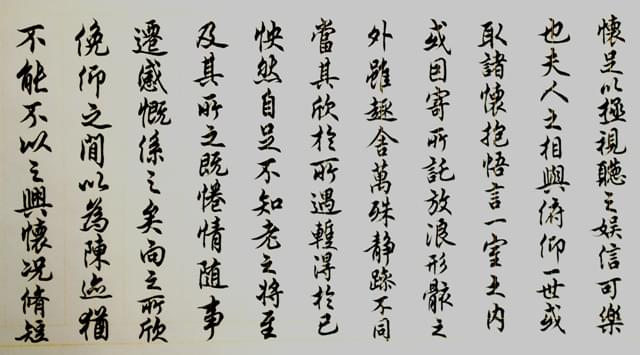 懷足以極視聽之娛信可樂
也夫人之相與俯仰一世或
取諸懷抱悟言一室之內
或因寄所託放浪形骸之
外雖趣舍萬殊靜躁不同
當其欣於所遇蹔得於己
怏然自足不知老之將至
及其所之既惓情隨事
遷感慨係之矣向之所欣
俛仰之閒以為陳迹猶
不能不以之興懷况脩短